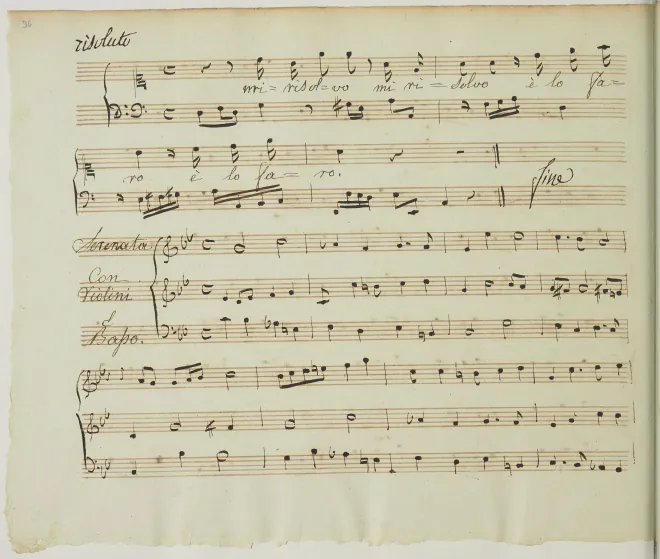 96
risoluto
mi = risol = vo mi ri = solvo è lo fa =
ro è lo fa = ro.
fine
Serenata
Con
Violini
e
Basso.